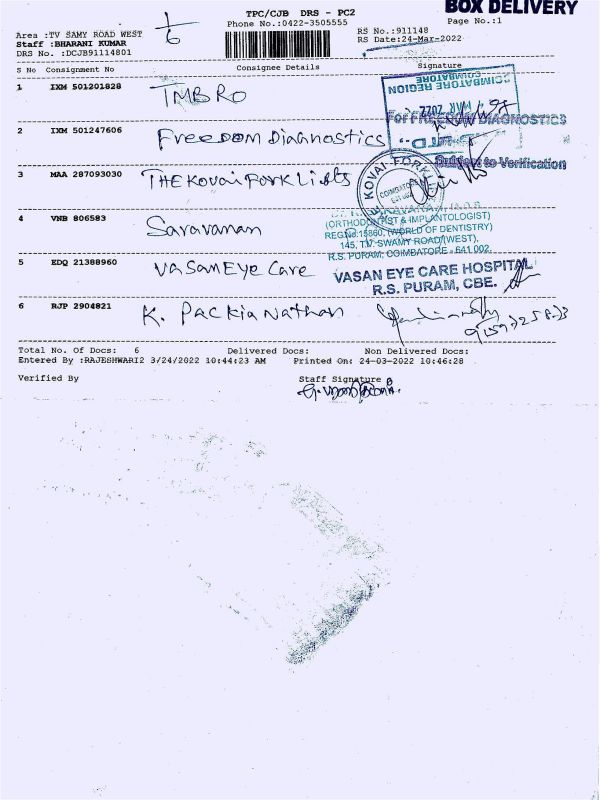 BOX DELIVERY
TPC/CJB DRS - PC2
Phone No.:0422-3505555
Page No.:1
1/6
Area :TV SAMY ROAD WEST
Staff :BHARANI KUMAR
DRS No. :DCJB91114801
RS No.:911148
RS Date:24-Mar-2022
S No Consignment No Consignee Details Signature
1 IXM 501201828 TMB RO
COIMBATORE REGION
COIMBATORE
MAR 2022
2 IXM 501247606 Freedom Diagnostics
For FREEDOM DIAGNOSTICS
Subject to Verification
3 MAA 287093030 THE Kovai Fork Lifts
KOVAI FORK
COIMBATORE
4 VNB 806583 Saravanan
(ORTHODONTIST & IMPLANTOLOGIST)
REG.No:15860, (WORLD OF DENTISTRY)
145, T.V. SWAMY ROAD (WEST),
R.S. PURAM, COIMBATORE - 641 002.
5 EDQ 21388960 Vasan Eye Care
VASAN EYE CARE HOSPITAL
R.S. PURAM, CBE.
6 RJP 2904821 K. Packia Nathan
Total No. Of Docs: 6 Delivered Docs: Non Delivered Docs:
Entered By :RAJESHWARI2 3/24/2022 10:44:23 AM Printed On: 24-03-2022 10:46:28
Verified By Staff Signature